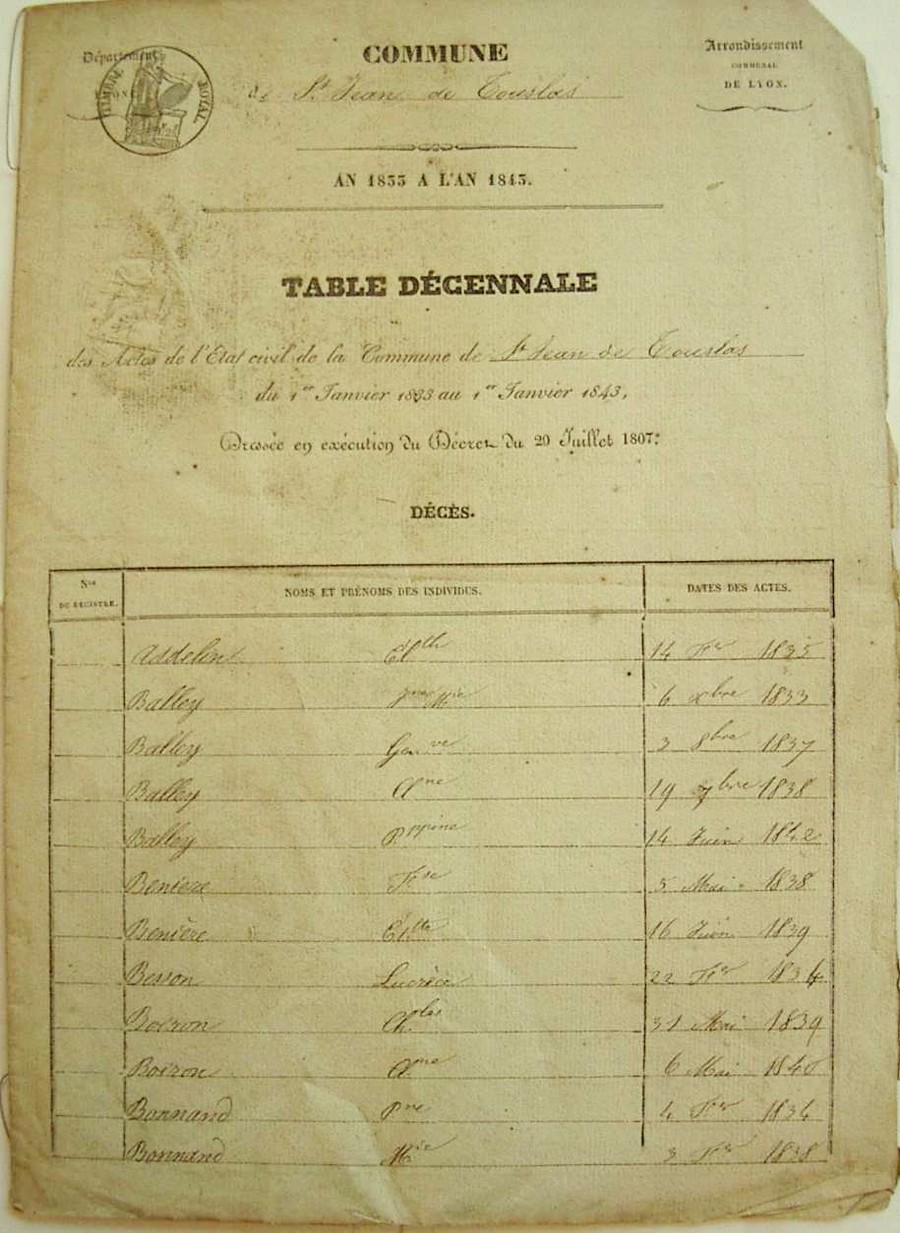 Département
TIMBRE ROYAL
COMMUNE
de St Jean de Touslas
Arrondissement
COMMUNAL
DE LYON.
AN 1833 A L'AN 1843.
TABLE DÉCENNALE
des Actes de l'État civil de la Commune de St Jean de Touslas
du 1er Janvier 1833 au 1er Janvier 1843,
Dressée en exécution du Décret du 20 Juillet 1807.
DÉCÈS.
Nos DU REGISTRE. NOMS ET PRÉNOMS DES INDIVIDUS. DATES DES ACTES.
Asdelin Elth 14 1835
Balley Mie 6 xbre 1833
Balley Genve 3 8bre 1837
Balley Ane 19 7bre 1838
Balley Pppine 14 Juin 1842
Beniere 5 Mai 1838
Benière Ettte 16 Juin 1839
Besson Lucrèce 22 1834
Boiron Chlas 31 Mai 1839
Boiron Ane 6 Mai 1840
Bonnand Pre 4 1834
Bonnand Mie 3 1838